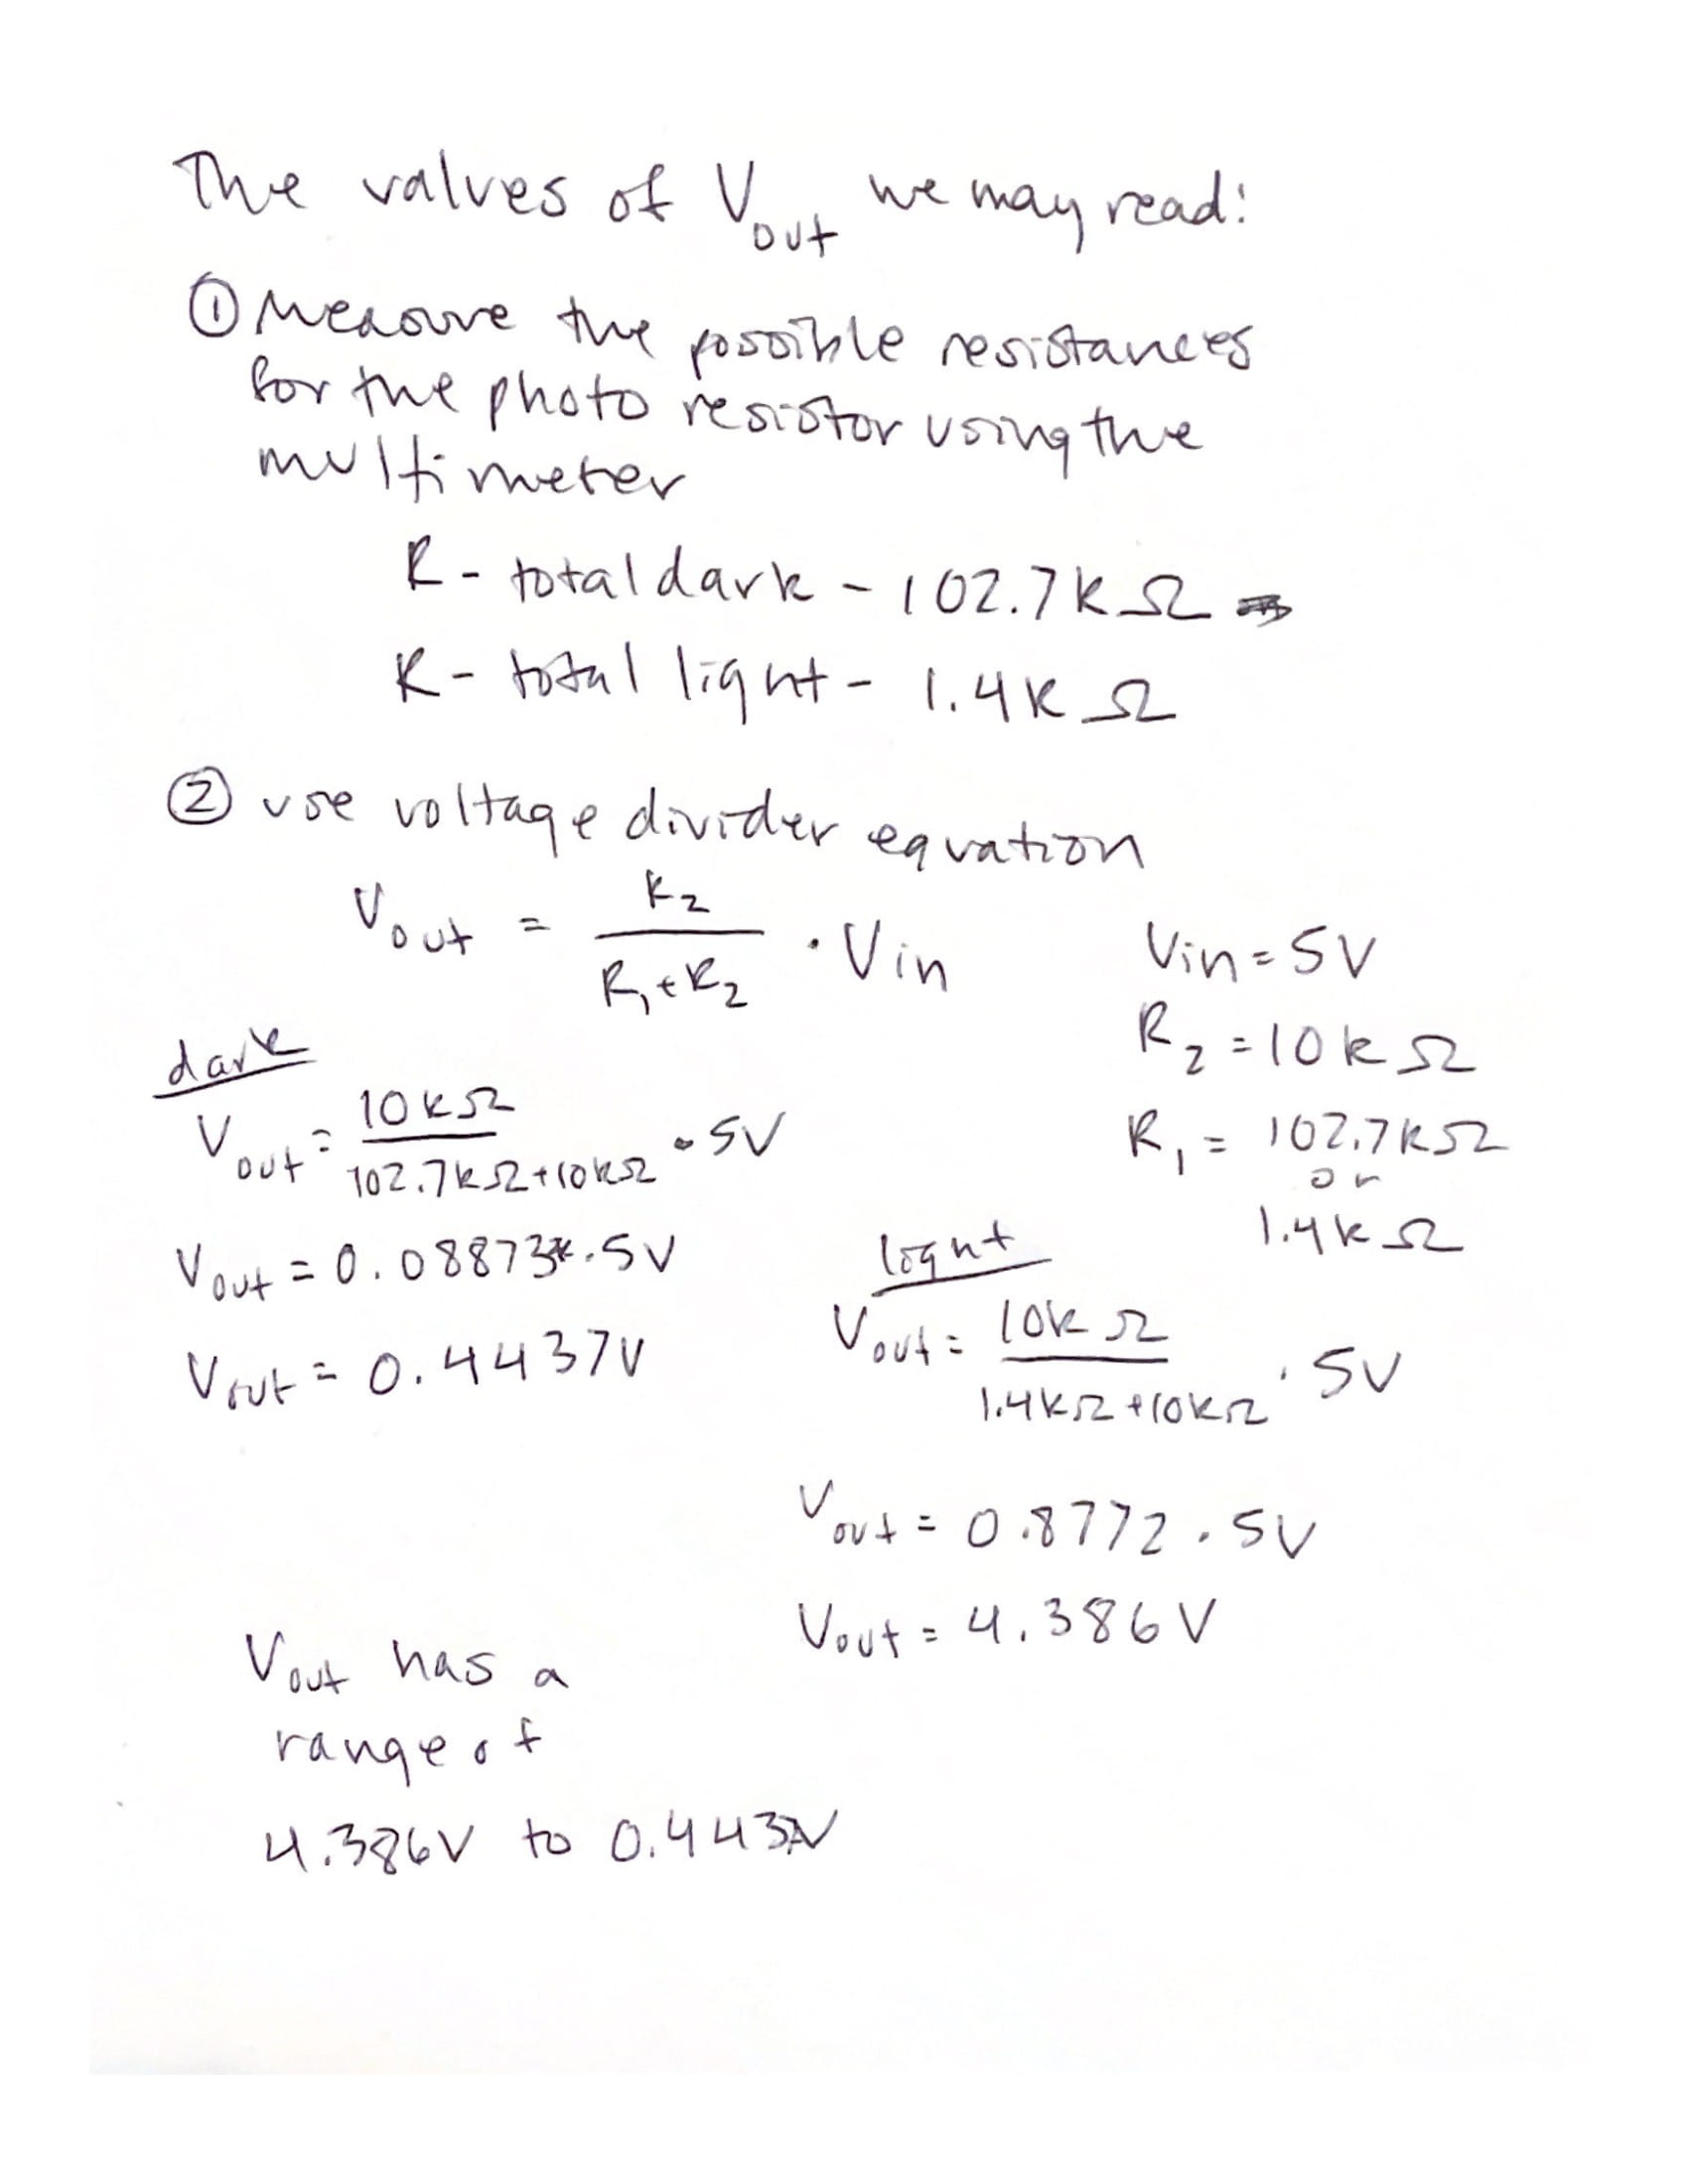 The values of Vout we may read:
① Measure the possible resistances
for the photo resistor using the
multimeter
R - total dark - 102.7kΩ
R - total light - 1.4kΩ
② use voltage divider equation
Vout = R2 / R1+R2 · Vin
Vin = 5V
R2 = 10kΩ
R1 = 102.7kΩ
or
1.4kΩ
dark
Vout = 10kΩ / 102.7kΩ+10kΩ · 5V
Vout = 0.08873 · 5V
Vout = 0.4437V
light
Vout = 10kΩ / 1.4kΩ+10kΩ · 5V
Vout = 0.8772 · 5V
Vout = 4.386V
Vout has a
range of
4.386V to 0.443V